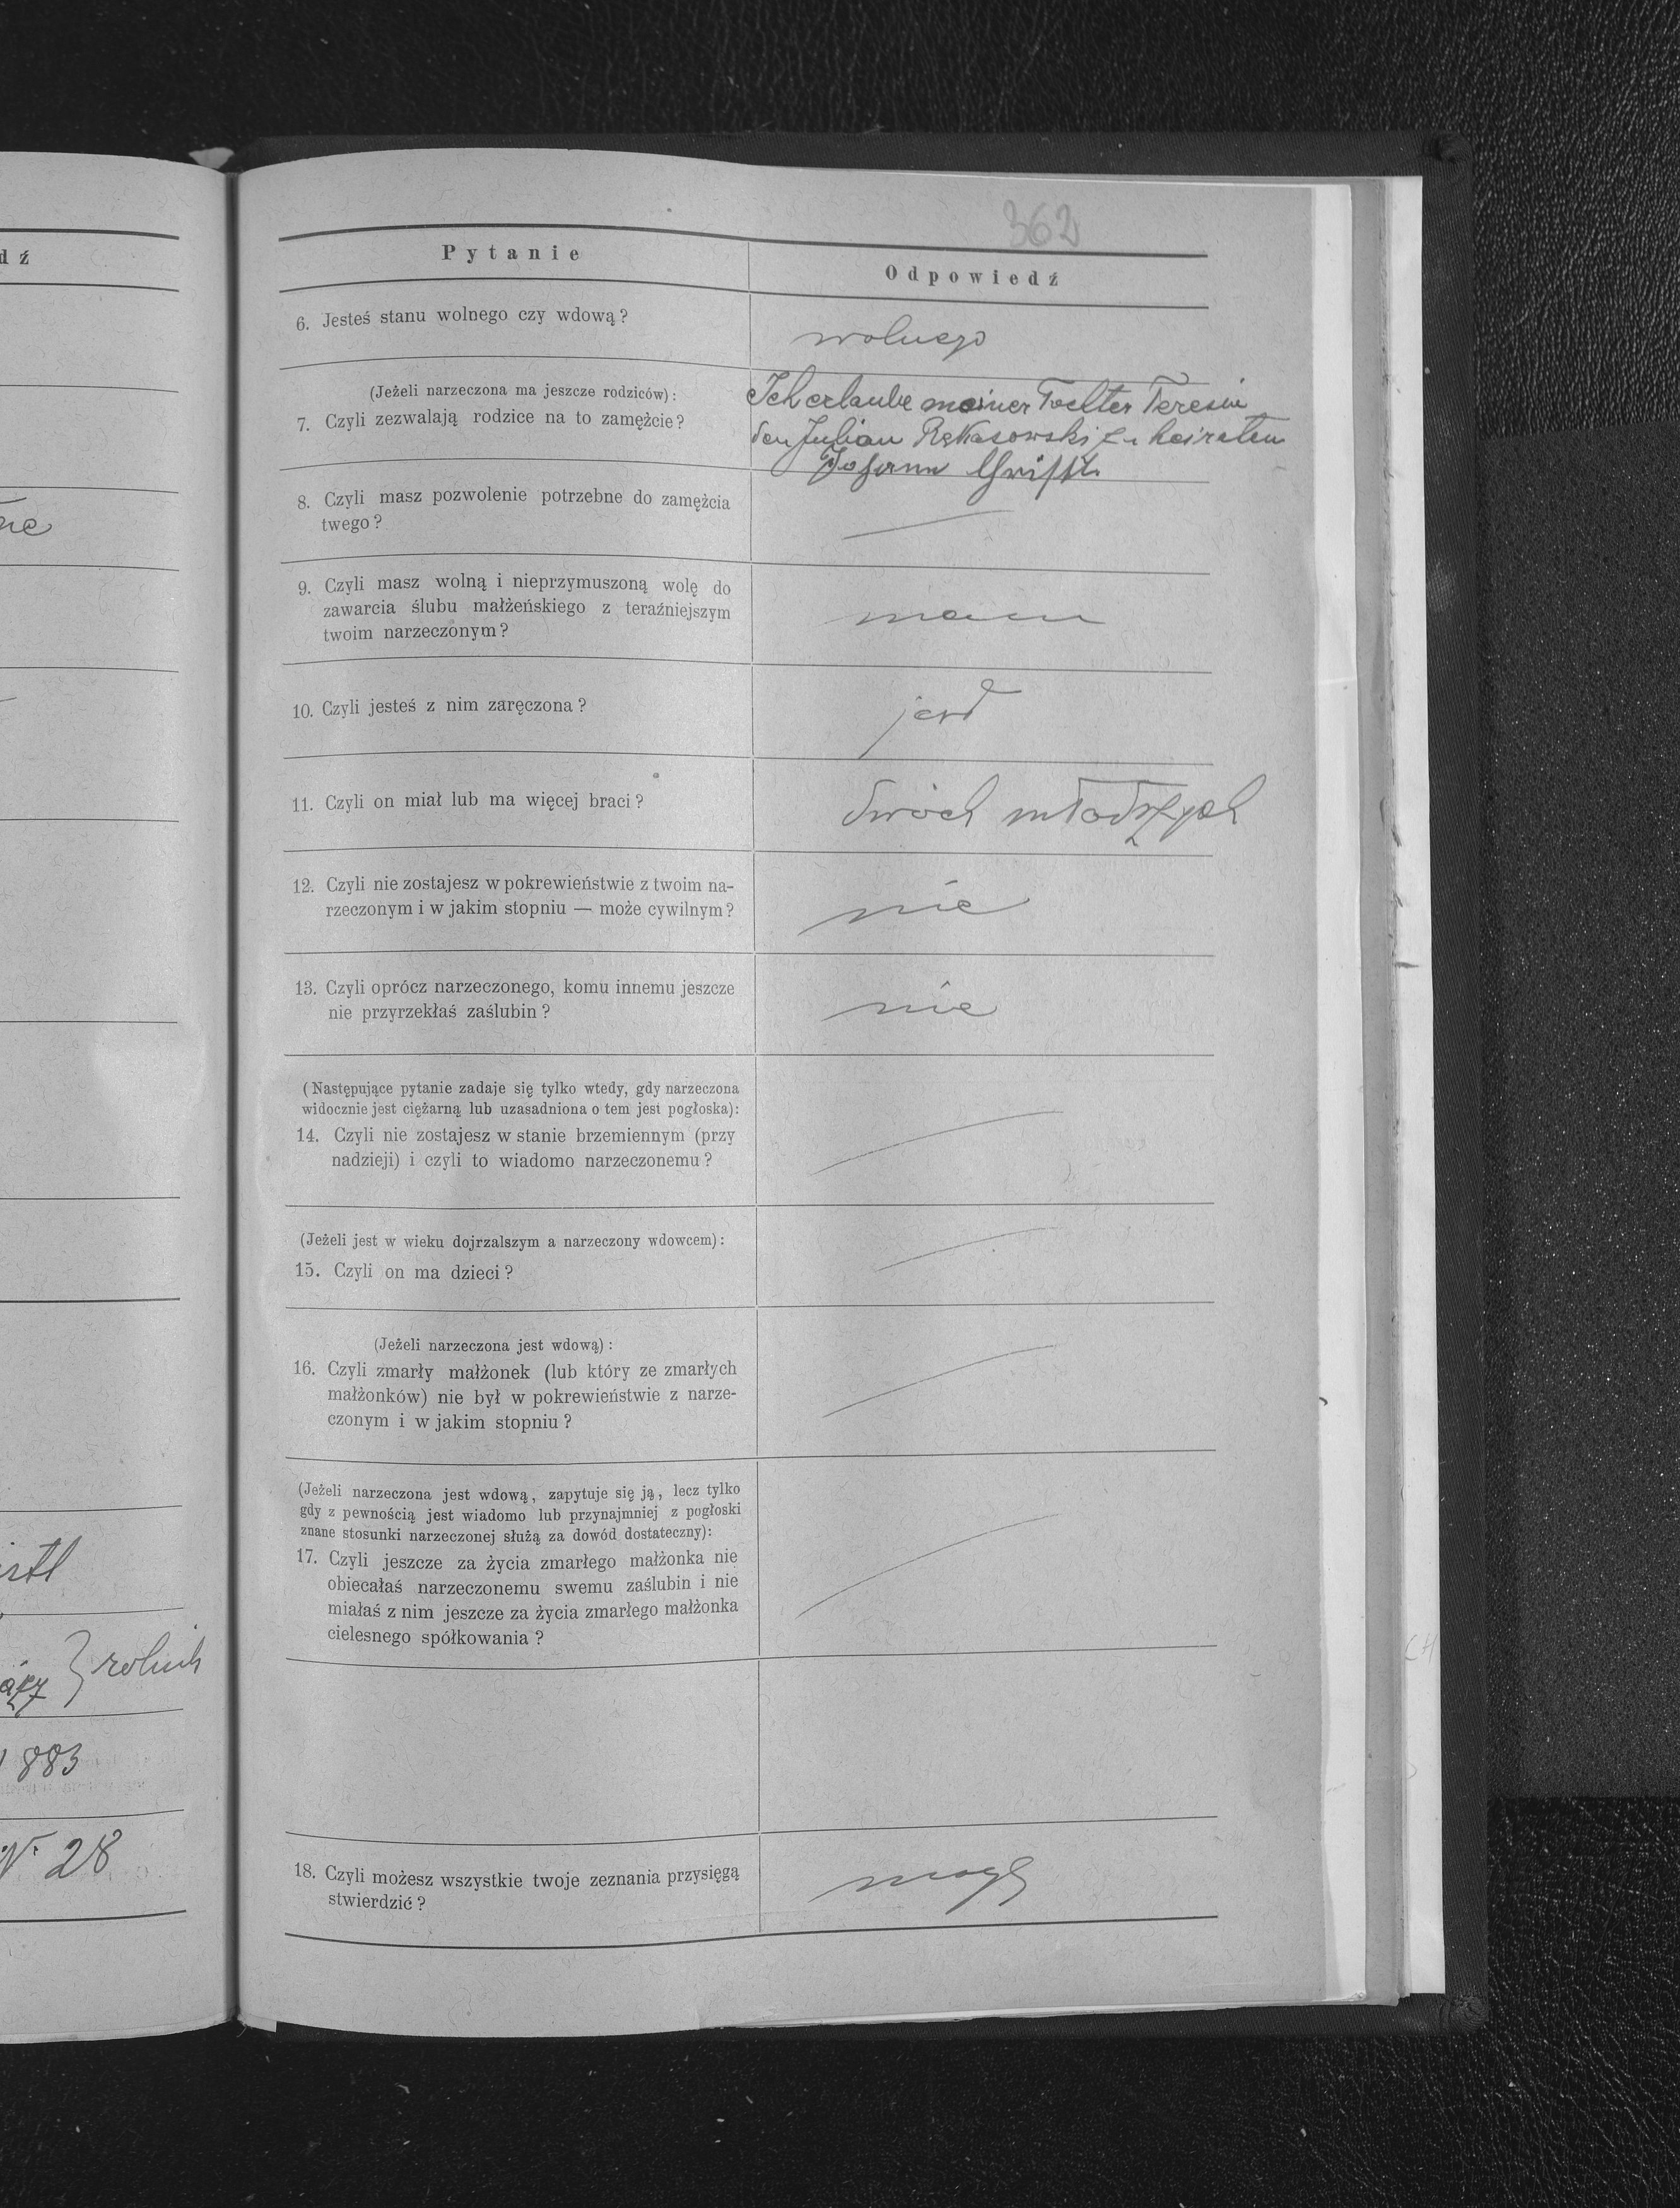 dź
ne
istl
rolnik
1883
N. 28
362
Pytanie
Odpowiedź
6. Jesteś stanu wolnego czy wdową?
wolnego
(Jeżeli narzeczona ma jeszcze rodziców):
7. Czyli zezwalają rodzice na to zamężcie?
Ich erlaube meiner Tochter Teresia
den Julian Rękasowski zu heiraten
Johann
8. Czyli masz pozwolenie potrzebne do zamężcia
twego?
9. Czyli masz wolną i nieprzymuszoną wolę do
zawarcia ślubu małżeńskiego z teraźniejszym
twoim narzeczonym?
mam
10. Czyli jesteś z nim zaręczona?
jest
11. Czyli on miał lub ma więcej braci?
dwóch młodszych
12. Czyli nie zostajesz w pokrewieństwie z twoim na-
rzeczonym i w jakim stopniu — może cywilnym?
nie
13. Czyli oprócz narzeczonego, komu innemu jeszcze
nie przyrzekłaś zaślubin?
nie
(Następujące pytanie zadaje się tylko wtedy, gdy narzeczona
widocznie jest ciężarną lub uzasadniona o tem jest pogłoska):
14. Czyli nie zostajesz w stanie brzemiennym (przy
nadzieji) i czyli to wiadomo narzeczonemu?
(Jeżeli jest w wieku dojrzalszym a narzeczony wdowcem):
15. Czyli on ma dzieci?
(Jeżeli narzeczona jest wdową):
16. Czyli zmarły małżonek (lub który ze zmarłych
małżonków) nie był w pokrewieństwie z narze-
czonym i w jakim stopniu?
(Jeżeli narzeczona jest wdową, zapytuje się ją, lecz tylko
gdy z pewnością jest wiadomo lub przynajmniej z pogłoski
znane stosunki narzeczonej służą za dowód dostateczny):
17. Czyli jeszcze za życia zmarłego małżonka nie
obiecałaś narzeczonemu swemu zaślubin i nie
miałaś z nim jeszcze za życia zmarłego małżonka
cielesnego spółkowania?
18. Czyli możesz wszystkie twoje zeznania przysięgą
stwierdzić?
mogę